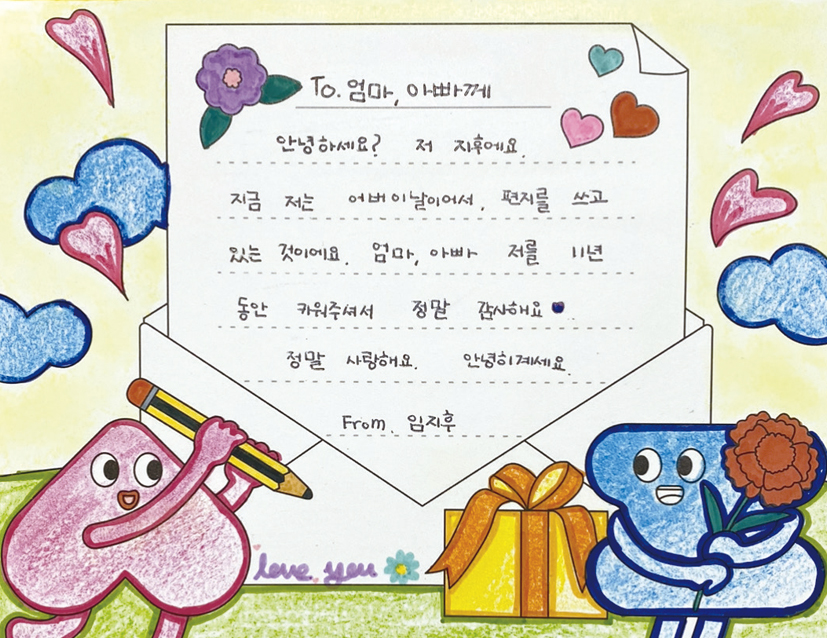 To. 엄마, 아빠께
안녕하세요? 저 지후에요.
지금 저는 어버이날이어서, 편지를 쓰고
있는 것이에요. 엄마, 아빠 저를 11년
동안 키워주셔서 정말 감사해요
정말 사랑해요. 안녕히계세요.
From. 임지후
love you